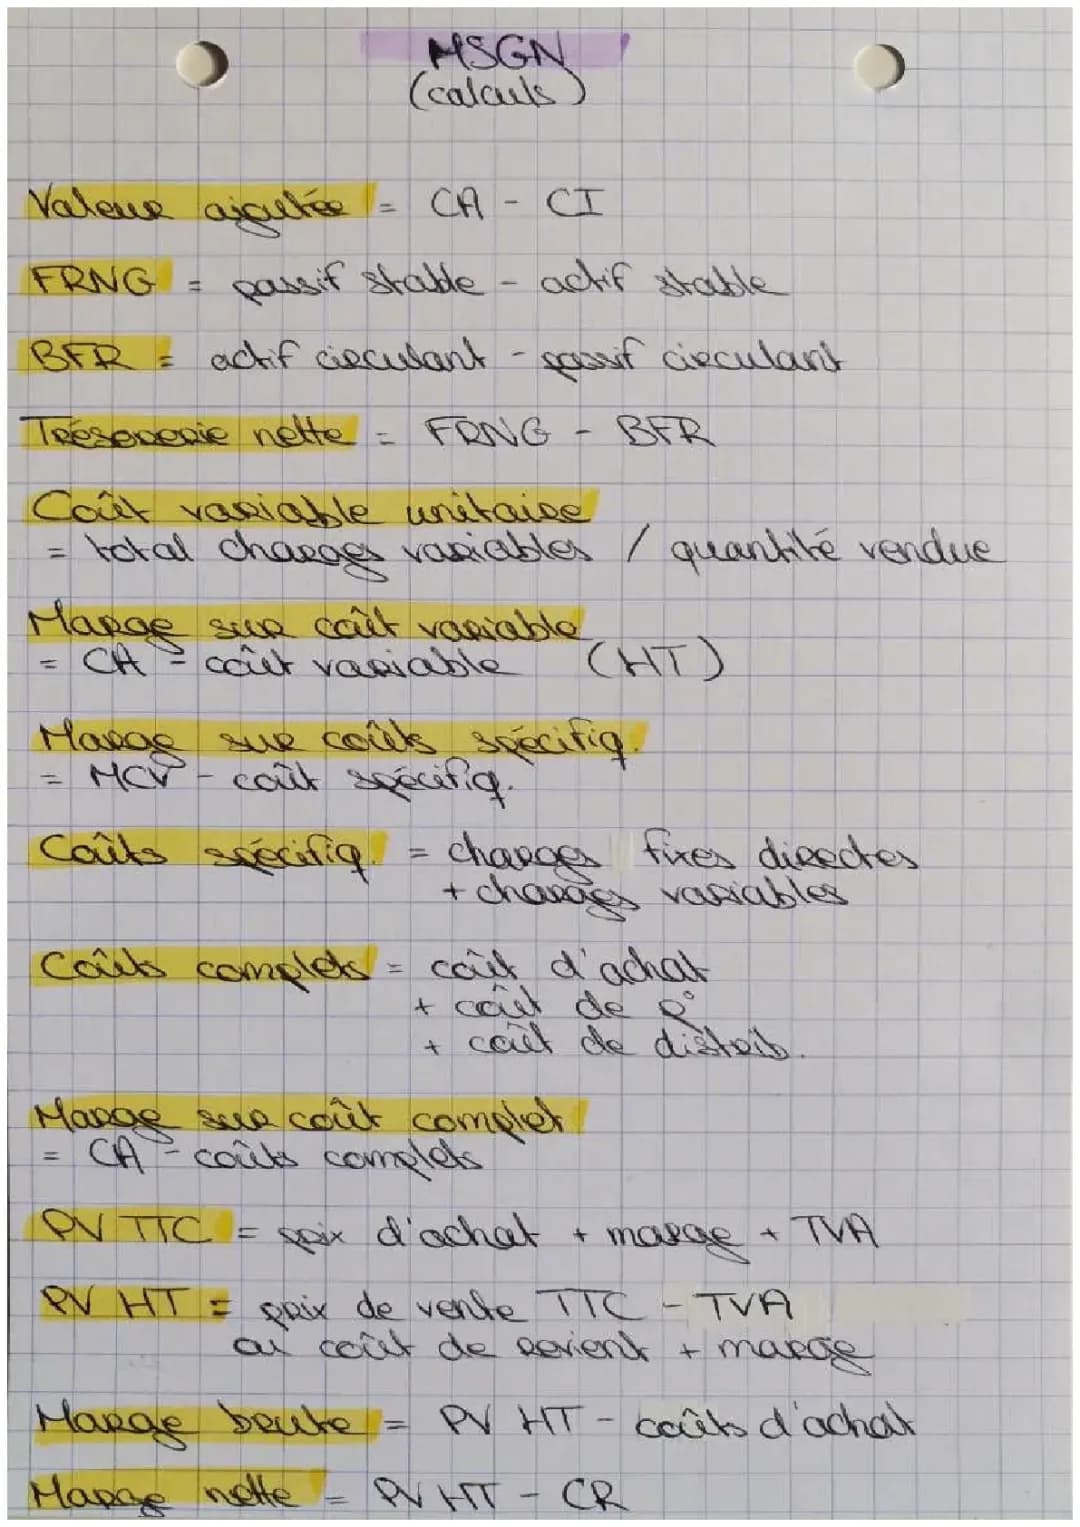 MSGN
(calculs)
Valeur ajoutée = CA - CI
FRNG = passif stable - actif stable
BFR = actif circulant - passif circulant
Trésorerie nette = FRNG - BFR
Coût variable unitaire
= total charges variables / quantité vendue
Marge sur coût variable
= CA - coût variable (HT)
Marge sur coûts spécifiq.
= MCV - coût spécifiq.
Coûts spécifiq. = charges fixes directes
+ charges variables
Coûts complets = coût d'achat
+ coût de p°
+ coût de distrib.
Marge sur coût complet
= CA - coûts complets
PV TTC = prix d'achat + marge + TVA
PV HT = prix de vente TTC - TVA
ou coût de revient + marge
Marge brute = PV HT - coûts d'achat
Marge nette = PV HT - CR